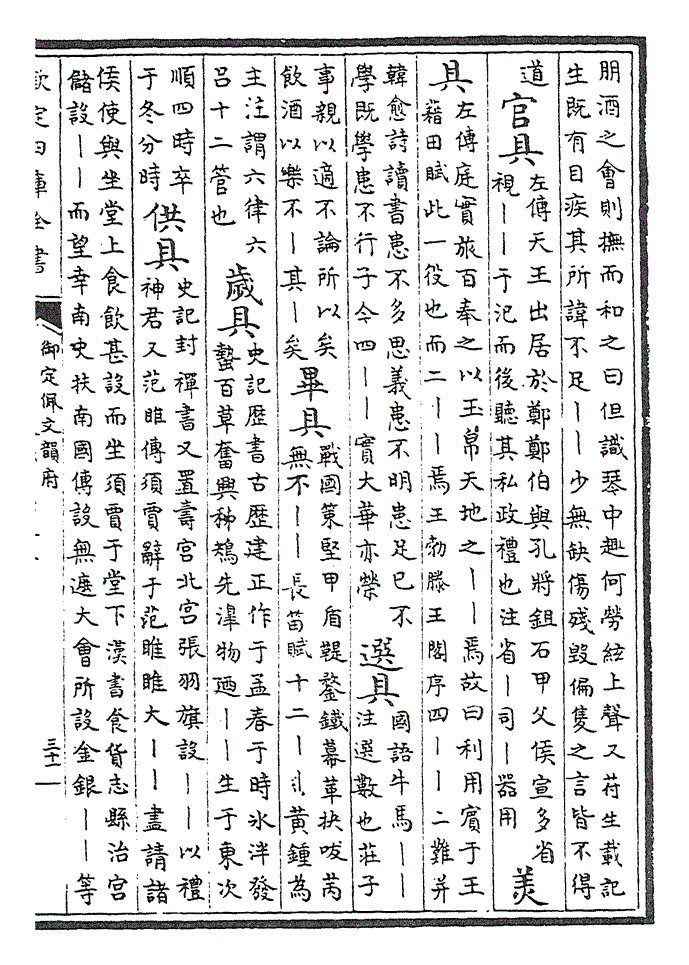 朋酒之會則撫而和之曰但識琴中趣何勞絃上聲又苻生載記
生既有目疾其所諱不足丨丨少無缺傷殘毀偏隻之言皆不得
道 官具 左傳天王出居於鄭鄭伯與孔將鉏石甲父侯宣多省
視丨丨于汜而後聽其私政禮也注省丨司丨器用 美
具 左傳庭實旅百奉之以玉帛天地之丨丨焉故曰利用賓于王
藉田賦此一役也而二丨丨焉王勃滕王閣序四丨丨二難并
韓愈詩讀書患不多思義患不明患足已不
學既學患不行子今四丨丨實大華亦榮 選具 國語牛馬丨丨
注選數也莊子
事親以適不論所以矣
飲酒以樂不丨其丨矣 畢具 戰國策堅甲盾鞮鍪鐵幕革抉㕹芮
無不丨丨長笛賦十二丨丨黃鍾為
主注謂六律六
呂十二管也 歲具 史記歴書古歴建正作于孟春于時冰泮發
蟄百草奮興秭鳺先滜物迺丨丨生于東次
順四時卒
于冬分時 供具 史記封禪書又置壽宮北宮張羽旗設丨丨以禮
神君又范雎傳須賈辭于范雎雎大丨丨盡請諸
侯使與坐堂上食飲甚設而坐須賈于堂下漢書食貨志縣治宮
儲設丨丨而望幸南史扶南國傳設無遮大會所設金銀丨丨等
欽定四庫全書
御定佩文韻府
三十一